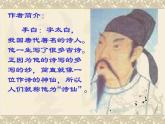 作者简介：
李白：字太白，
我国唐代著名的诗人。
他一生写了很多古诗。
正因为他的诗写的多
写的妙，简直就像一
位作诗的神仙，所以
人们就称他为“诗仙”。